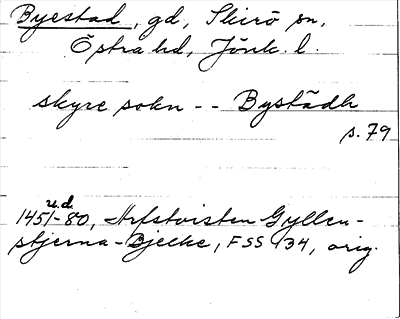 Byestad, gd, Skirö sn,
Östra hd, Jönk. l.
skyre sokn -- Bystädh
s. 79
u.d.
1451-80, Arfstvisten Gyllen-
stjerna-Bjelke, FSS 134, orig.